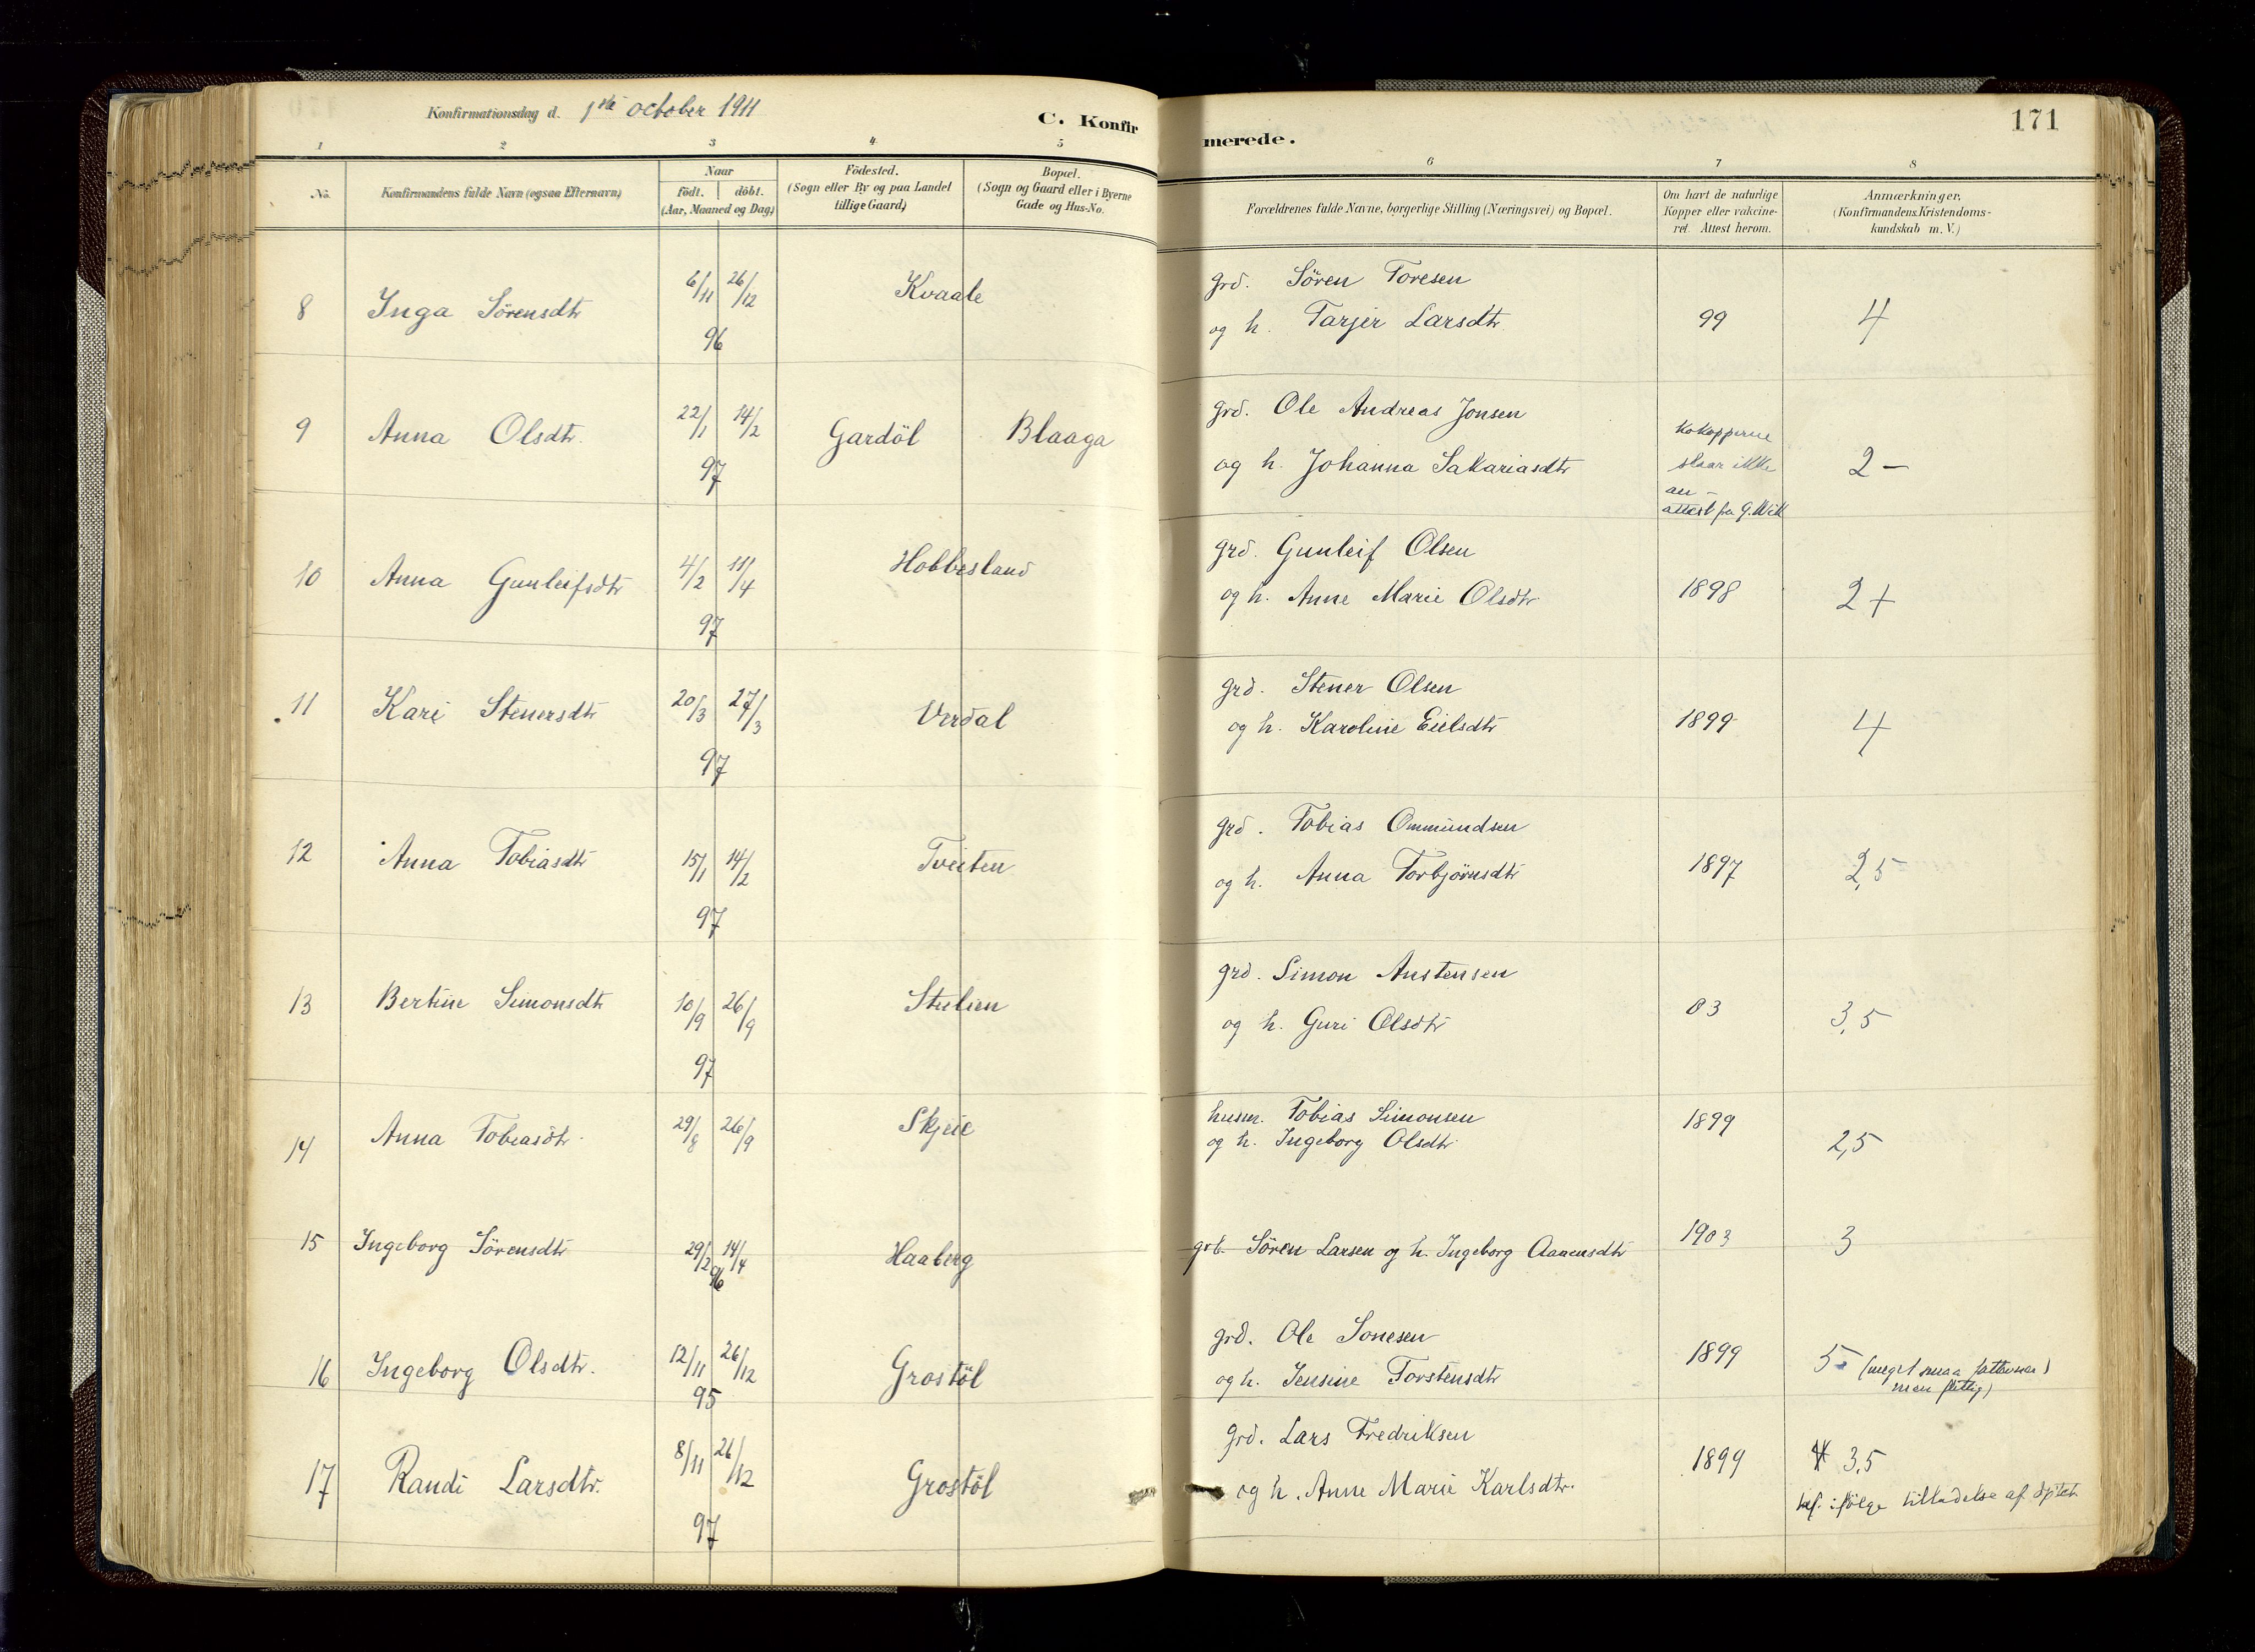 Konfirmationsdag d. 1ste october 1911
C. Konfirmerede.
171
1 2 3 4 5 6 7 8
No.
Konfirmandens fulde Navn (ogsaa Efternavn)
Naar
födt. döbt.
(Aar, Maaned og Dag)
Födested.
(Sogn eller By og paa Landet
tillige Gaard)
Bopæl.
(Sogn og Gaard eller i Byerne
Gade og Hus-No.
Forældrenes fulde Navne, borgerlige Stilling (Næringsvei) og Bopæl.
Om havt de naturlige
Kopper eller vakcine-
ret. Attest herom.
Anmærkninger,
(Konfirmandens Kristendoms-
kundskab m. V.)
8 Inga Sörensdtr 6/11 26/12 96 Kvaale
grd. Sören Toresen
og h. Tarjer Larsdtr 99 4
9 Anna Olsdtr. 22/1 14/2 97 Gardöl Blaaga
grd. Ole Andreas Jonsen
og h. Johanna Sakariasdtr
Kokopperne
slaar ikke
an -
attest fra G. 2 -
10 Anna Gunleifsdtr 4/2 11/4 97 Hobbesland
grd. Gunleif Olsen
og h. Anne Marie Olsdtr 1898 2+
11 Kari Stenersdtr 20/3 27/3 97 Urdal
grd. Stener Olsen
og h. Karoline Eielsdtr 1899 4
12 Anna Tobiasdtr 15/1 14/2 97 Tveiten
grd. Tobias Ommundsen
og h. Anna Torbjörnsdtr 1897 2,5
13 Bertine Simonsdtr 10/9 26/9 97 Stulien
grd. Simon Austensen
og h. Guri Olsdtr 03 3,5
14 Anna Tobiasdtr. 29/8 26/9 Skjeie
husm. Tobias Simonsen
og h. Ingeborg Olsdtr 1899 2,5
15 Ingeborg Sörensdtr 29/2 14/4 96 Haaberg
grb. Sören Larsen og h. Ingeborg Aanensdtr 1903 3
16 Ingeborg Olsdtr. 12/11 26/12 95 Grostöl
grd. Ole Sonesen
og h. Jensine Torstensdtr 1899 5 (meget smaa
men flittig)
17 Randi Larsdtr. 8/11 26/12 97 Grostöl
grd. Lars Fredriksen
og h. Anne Marie Karlsdtr. 1899 3,5
ifölge tilladelse af